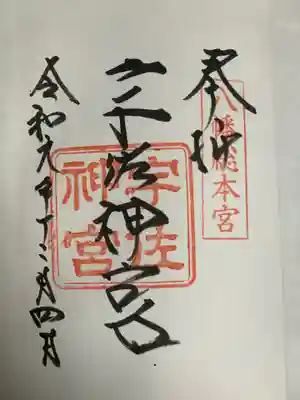 奉拝
八幡総本宮
宇佐神宮
宇佐神宮
令和元年十二月四日